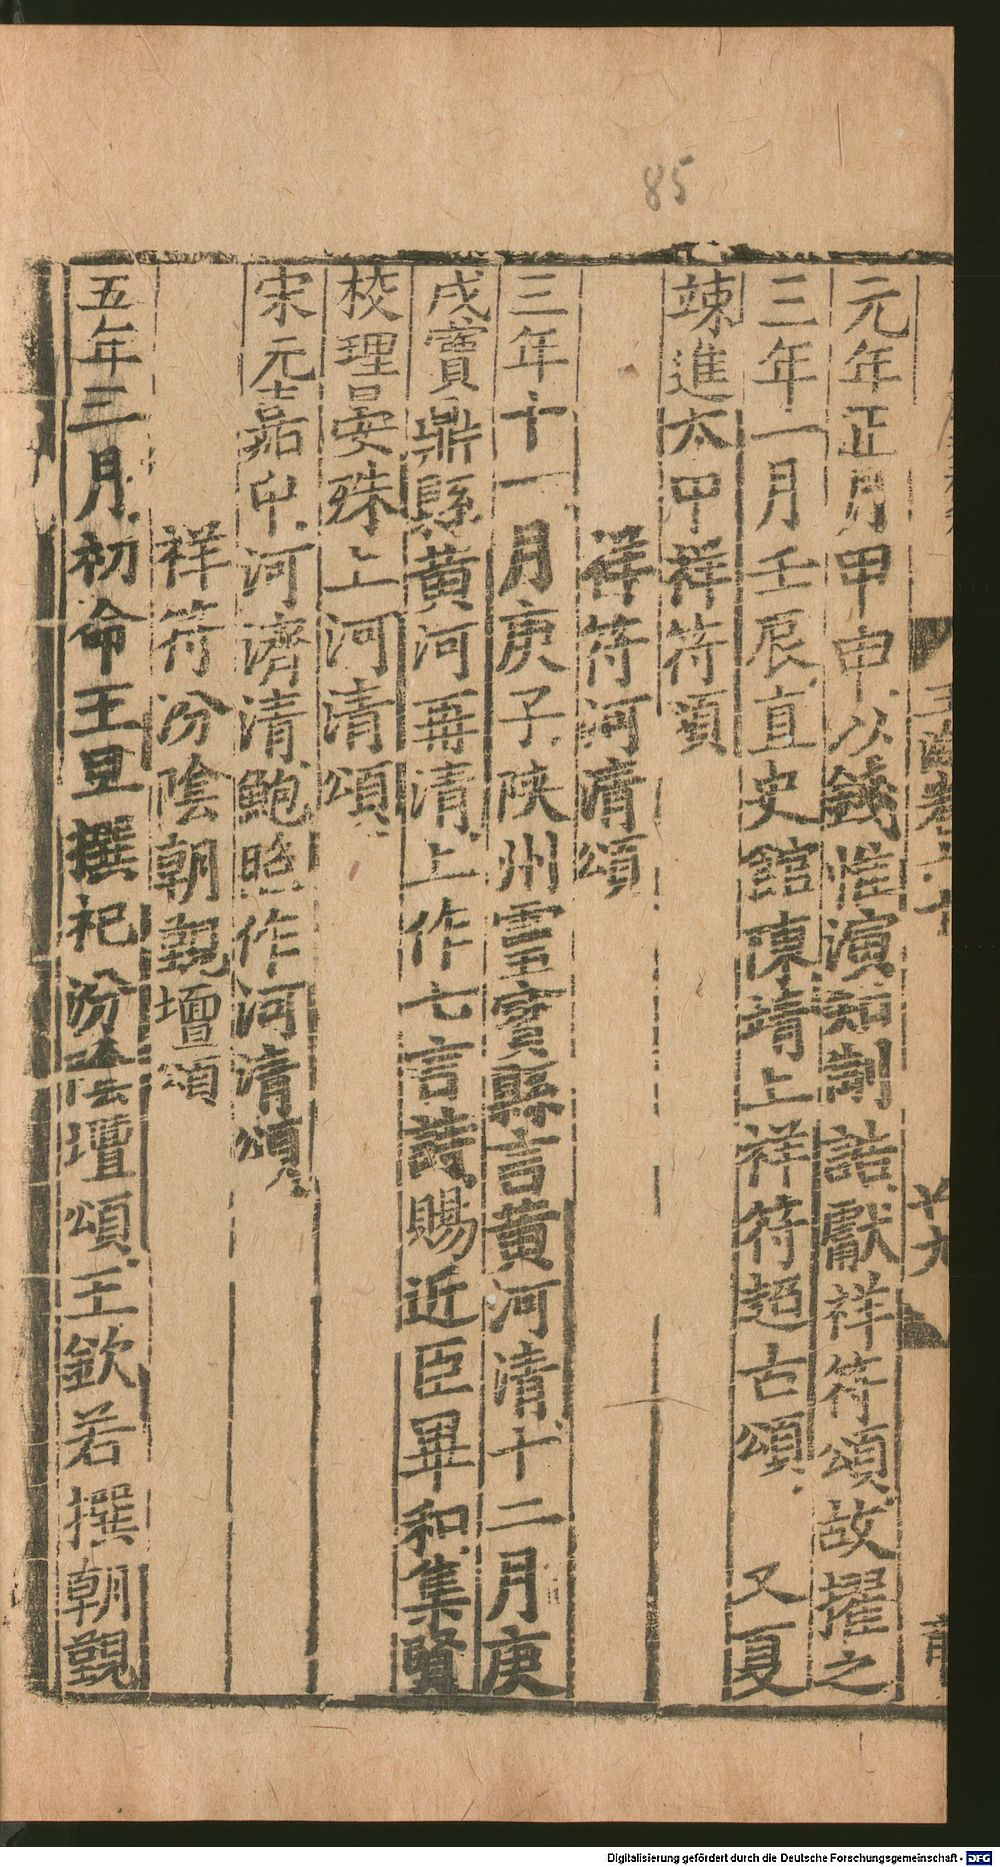 85
元年正月甲申以錢惟演知制誥獻祥符頌故擢之
三年二月壬辰直史館陳靖上祥符超古頌 又夏
竦進太平祥符頌
祥符河清頌
三年十一月庚子陝州靈寳縣言黄河清十二月庚
戌寳鼎縣黄河再清上作七言詩賜近臣畢和集賢
校理晏殊上河清頌
宋元嘉中河濟清鮑照作河清頌
祥符汾陰朝覲壇頌
五年三月初命王旦撰祀汾陰壇頌王欽若撰朝覲
Digitalisierung gefördert durch die Deutsche Forschungsgemeinschaft - DFG